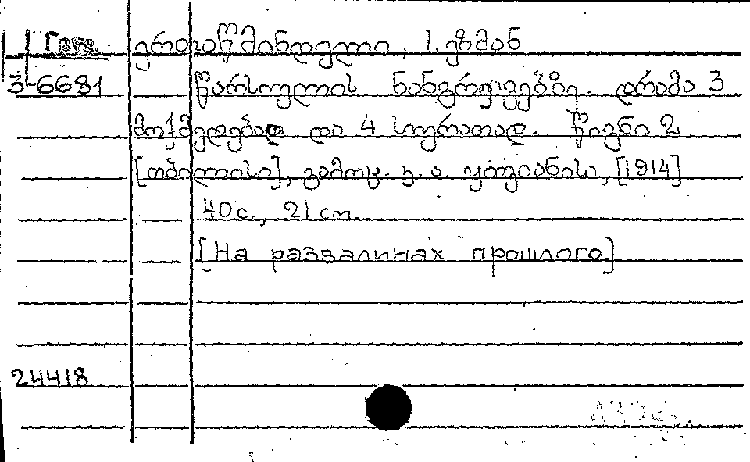 ერთაწმინდელი, ი. ეზმან
3-6681 წარსულის ნანგრევებზე. დრამა 3
მოქმედებად და 4 სურათად. წიგნი 2
[თბილისი], გამოც. ე. ა. ყიფიანისა, [1914]
40 с., 21 см.
[На развалинах прошлого]
24418